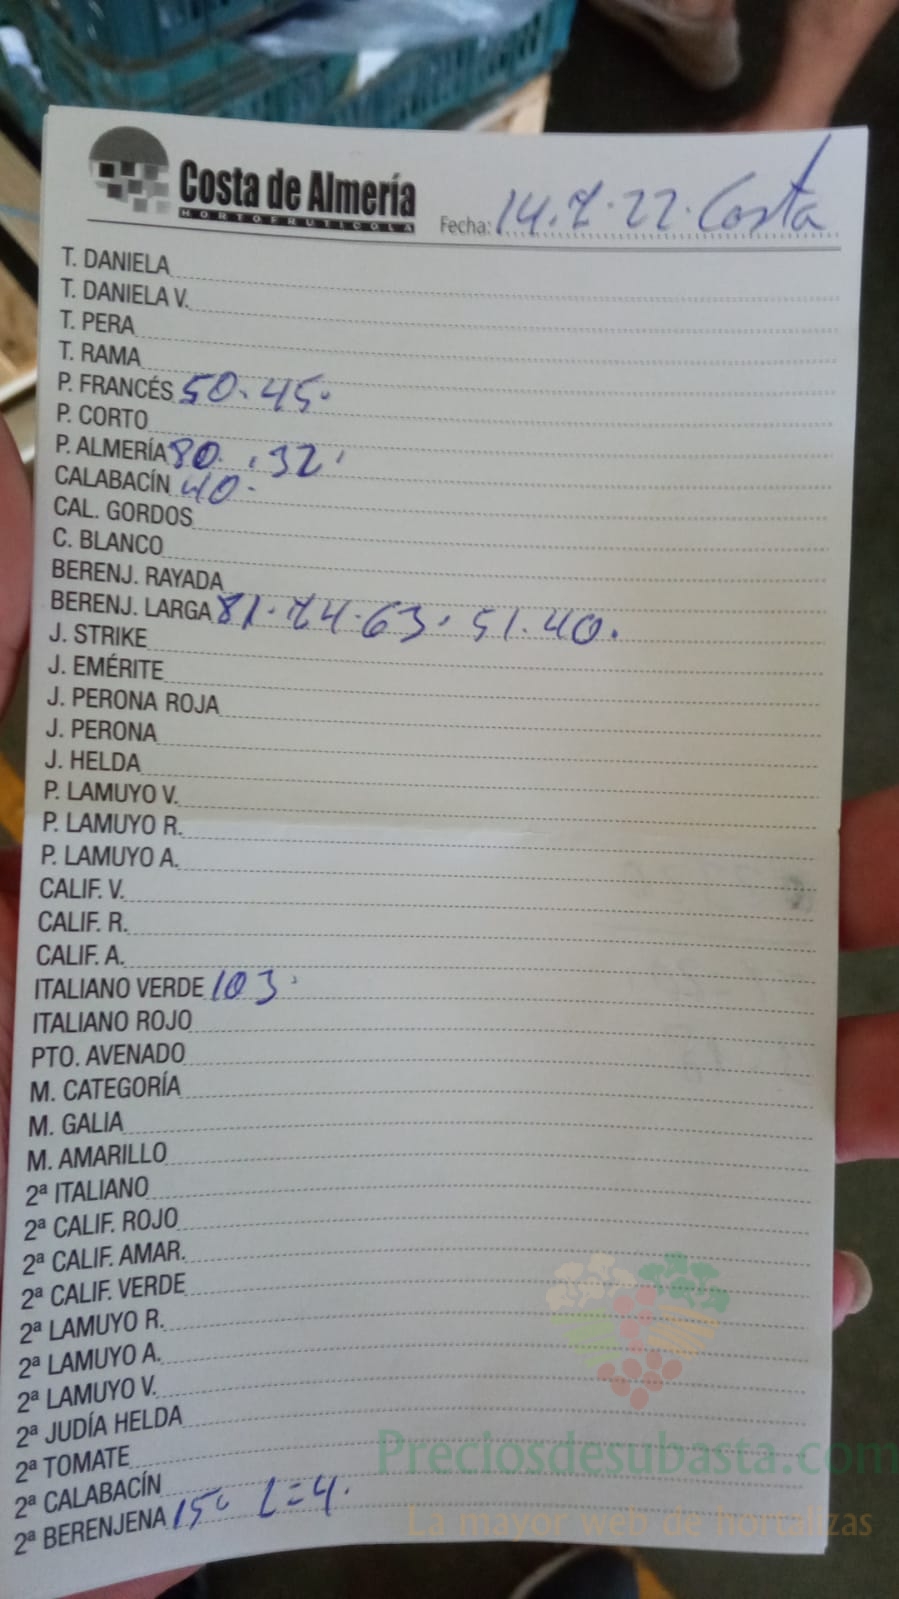 Costa de Almería
HORTOFRUTICOLA
Fecha: 14.7.22. Costa
T. DANIELA
T. DANIELA V.
T. PERA
T. RAMA
P. FRANCÉS 50. 45.
P. CORTO
P. ALMERÍA 80. . 32.
CALABACÍN 40.
CAL. GORDOS
C. BLANCO
BERENJ. RAYADA
BERENJ. LARGA 81. 74. 63. 51. 40.
J. STRIKE
J. EMÉRITE
J. PERONA ROJA
J. PERONA
J. HELDA
P. LAMUYO V.
P. LAMUYO R.
P. LAMUYO A.
CALIF. V.
CALIF. R.
CALIF. A.
ITALIANO VERDE 103.
ITALIANO ROJO
PTO. AVENADO
M. CATEGORÍA
M. GALIA
M. AMARILLO
2ª ITALIANO
2ª CALIF. ROJO
2ª CALIF. AMAR.
2ª CALIF. VERDE
2ª LAMUYO R.
2ª LAMUYO A.
2ª LAMUYO V.
2ª JUDÍA HELDA
2ª TOMATE
2ª CALABACÍN
2ª BERENJENA 15 L=4.
Preciosdesubasta.com
La mayor web de hortalizas